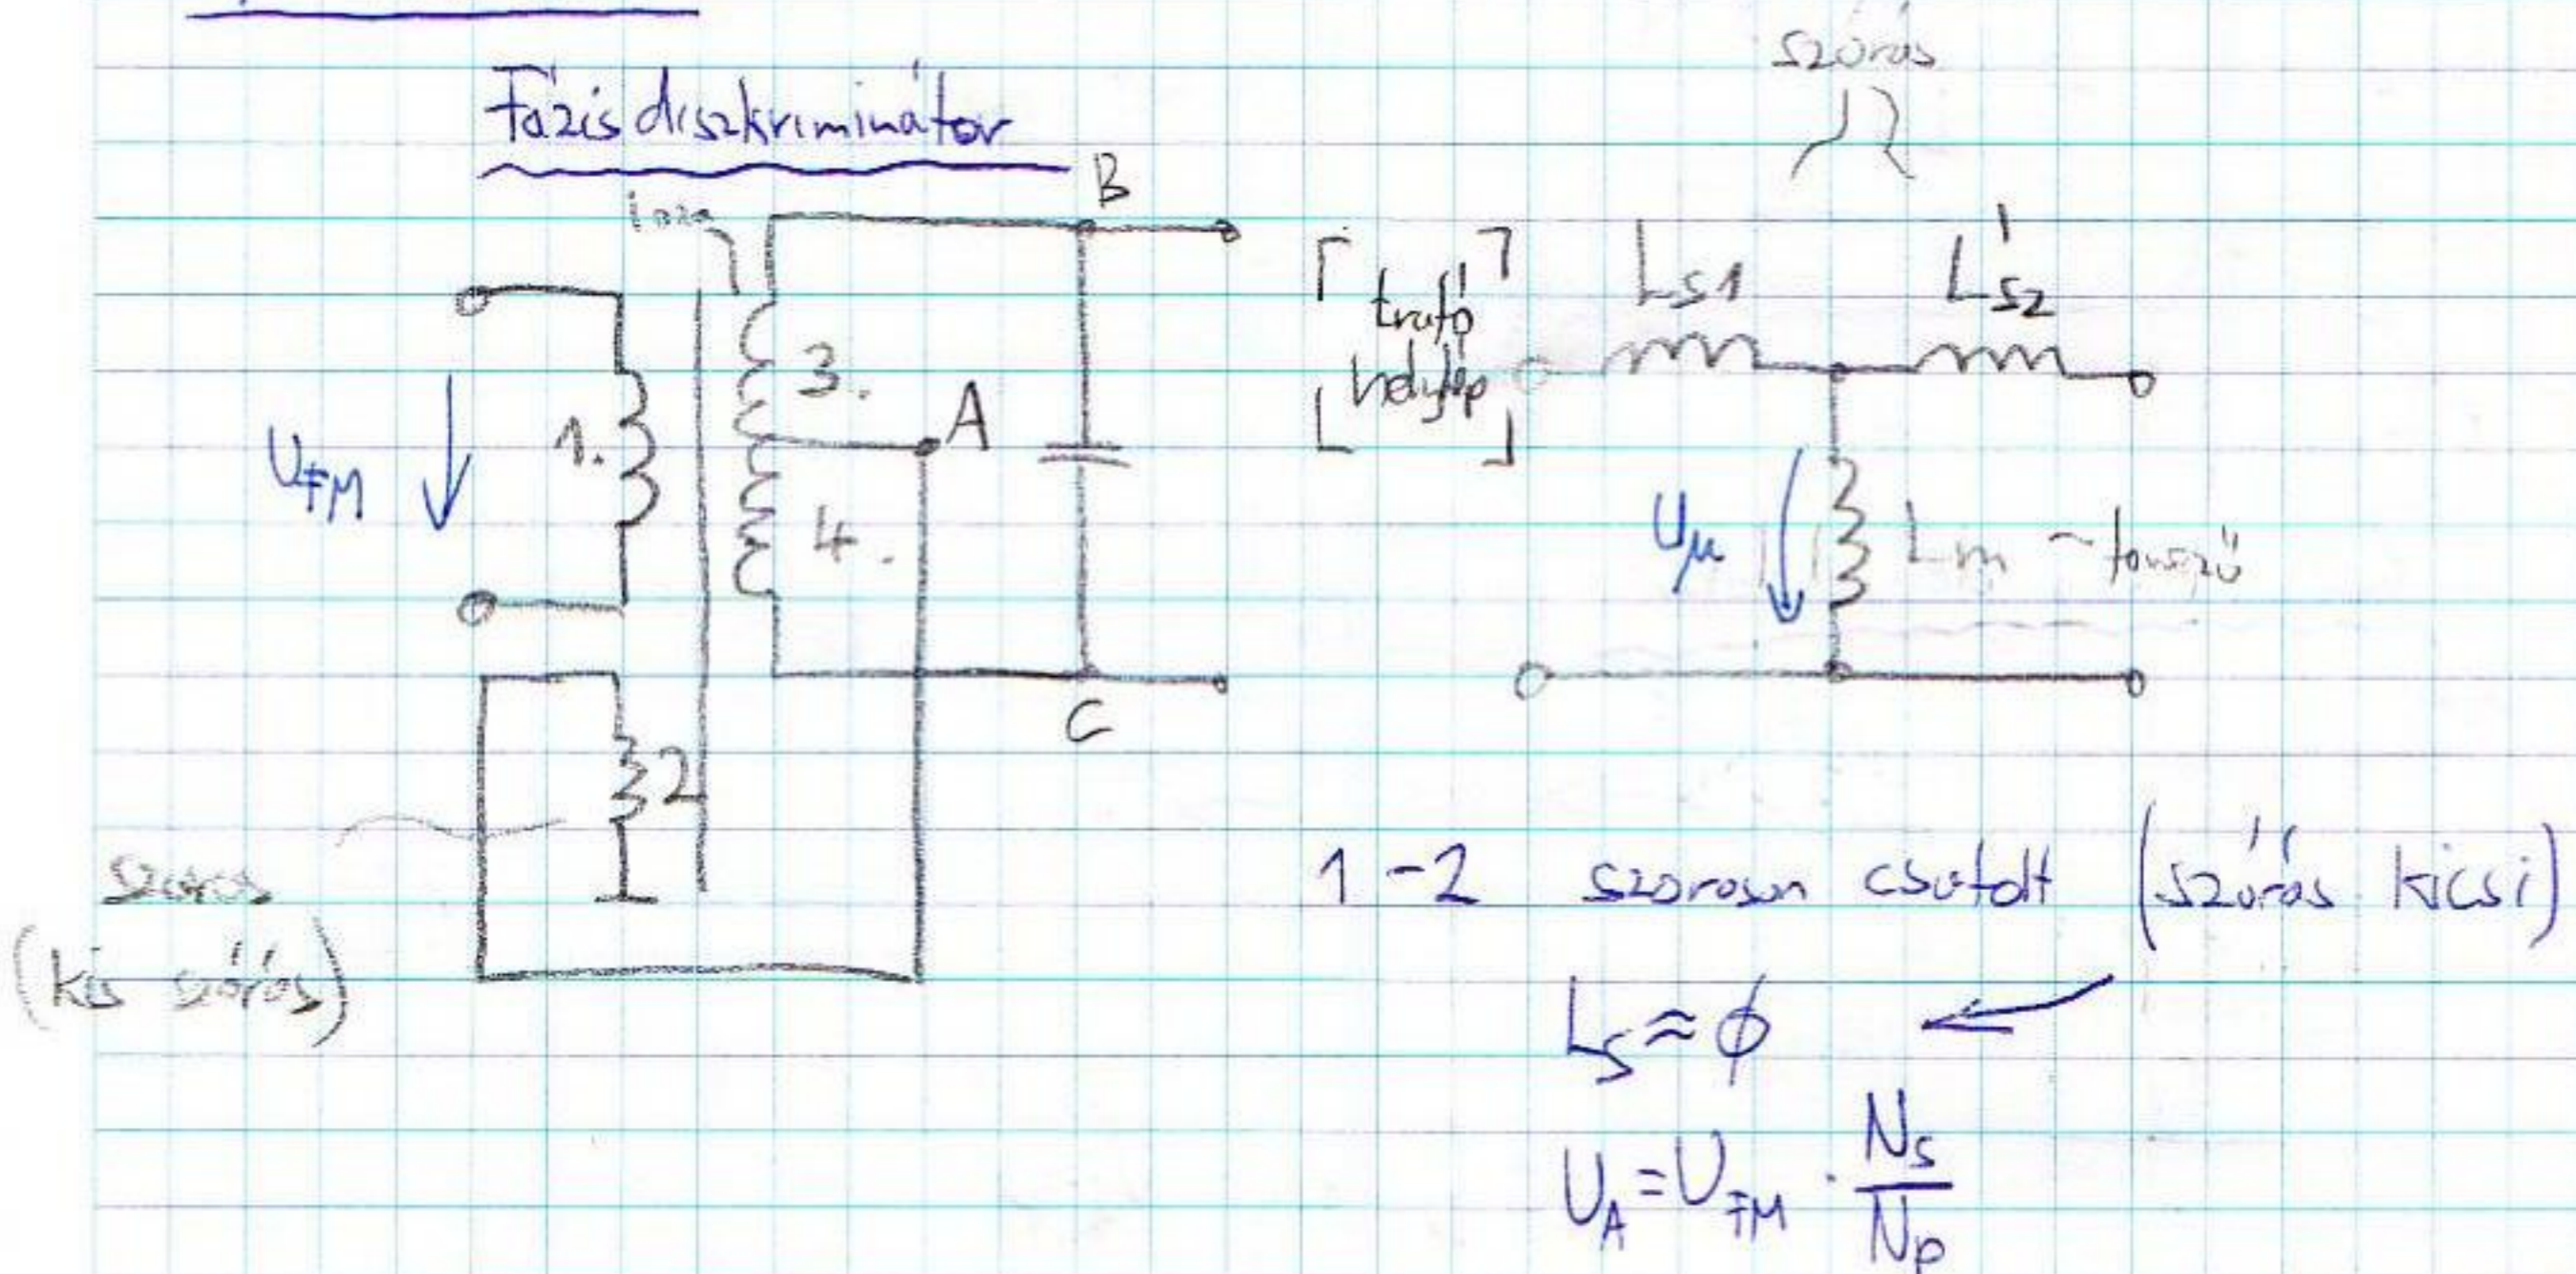 Fázisdiszkriminátor
szórás
laza
B
U_FM
1.
3.
A
4.
C
2
szoros
(kis szórás)
trafó
helykép
L_S1
L'_S2
U_μ
L_m
1-2 szorosan csatolt (szórás kicsi)
L_S ≈ ϕ
U_A = U_FM · N_S / N_P